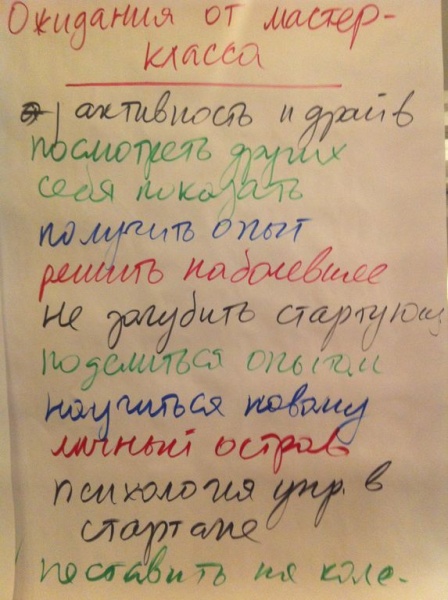 Ожидания от мастер-
класса
активность и драйв
посмотреть других
себя показать
получить опыт
решить наболевшее
не загубить стартующ
поделиться опытом
научиться новому
личный остров
психология упр. в
стартапе
поставить на коле-